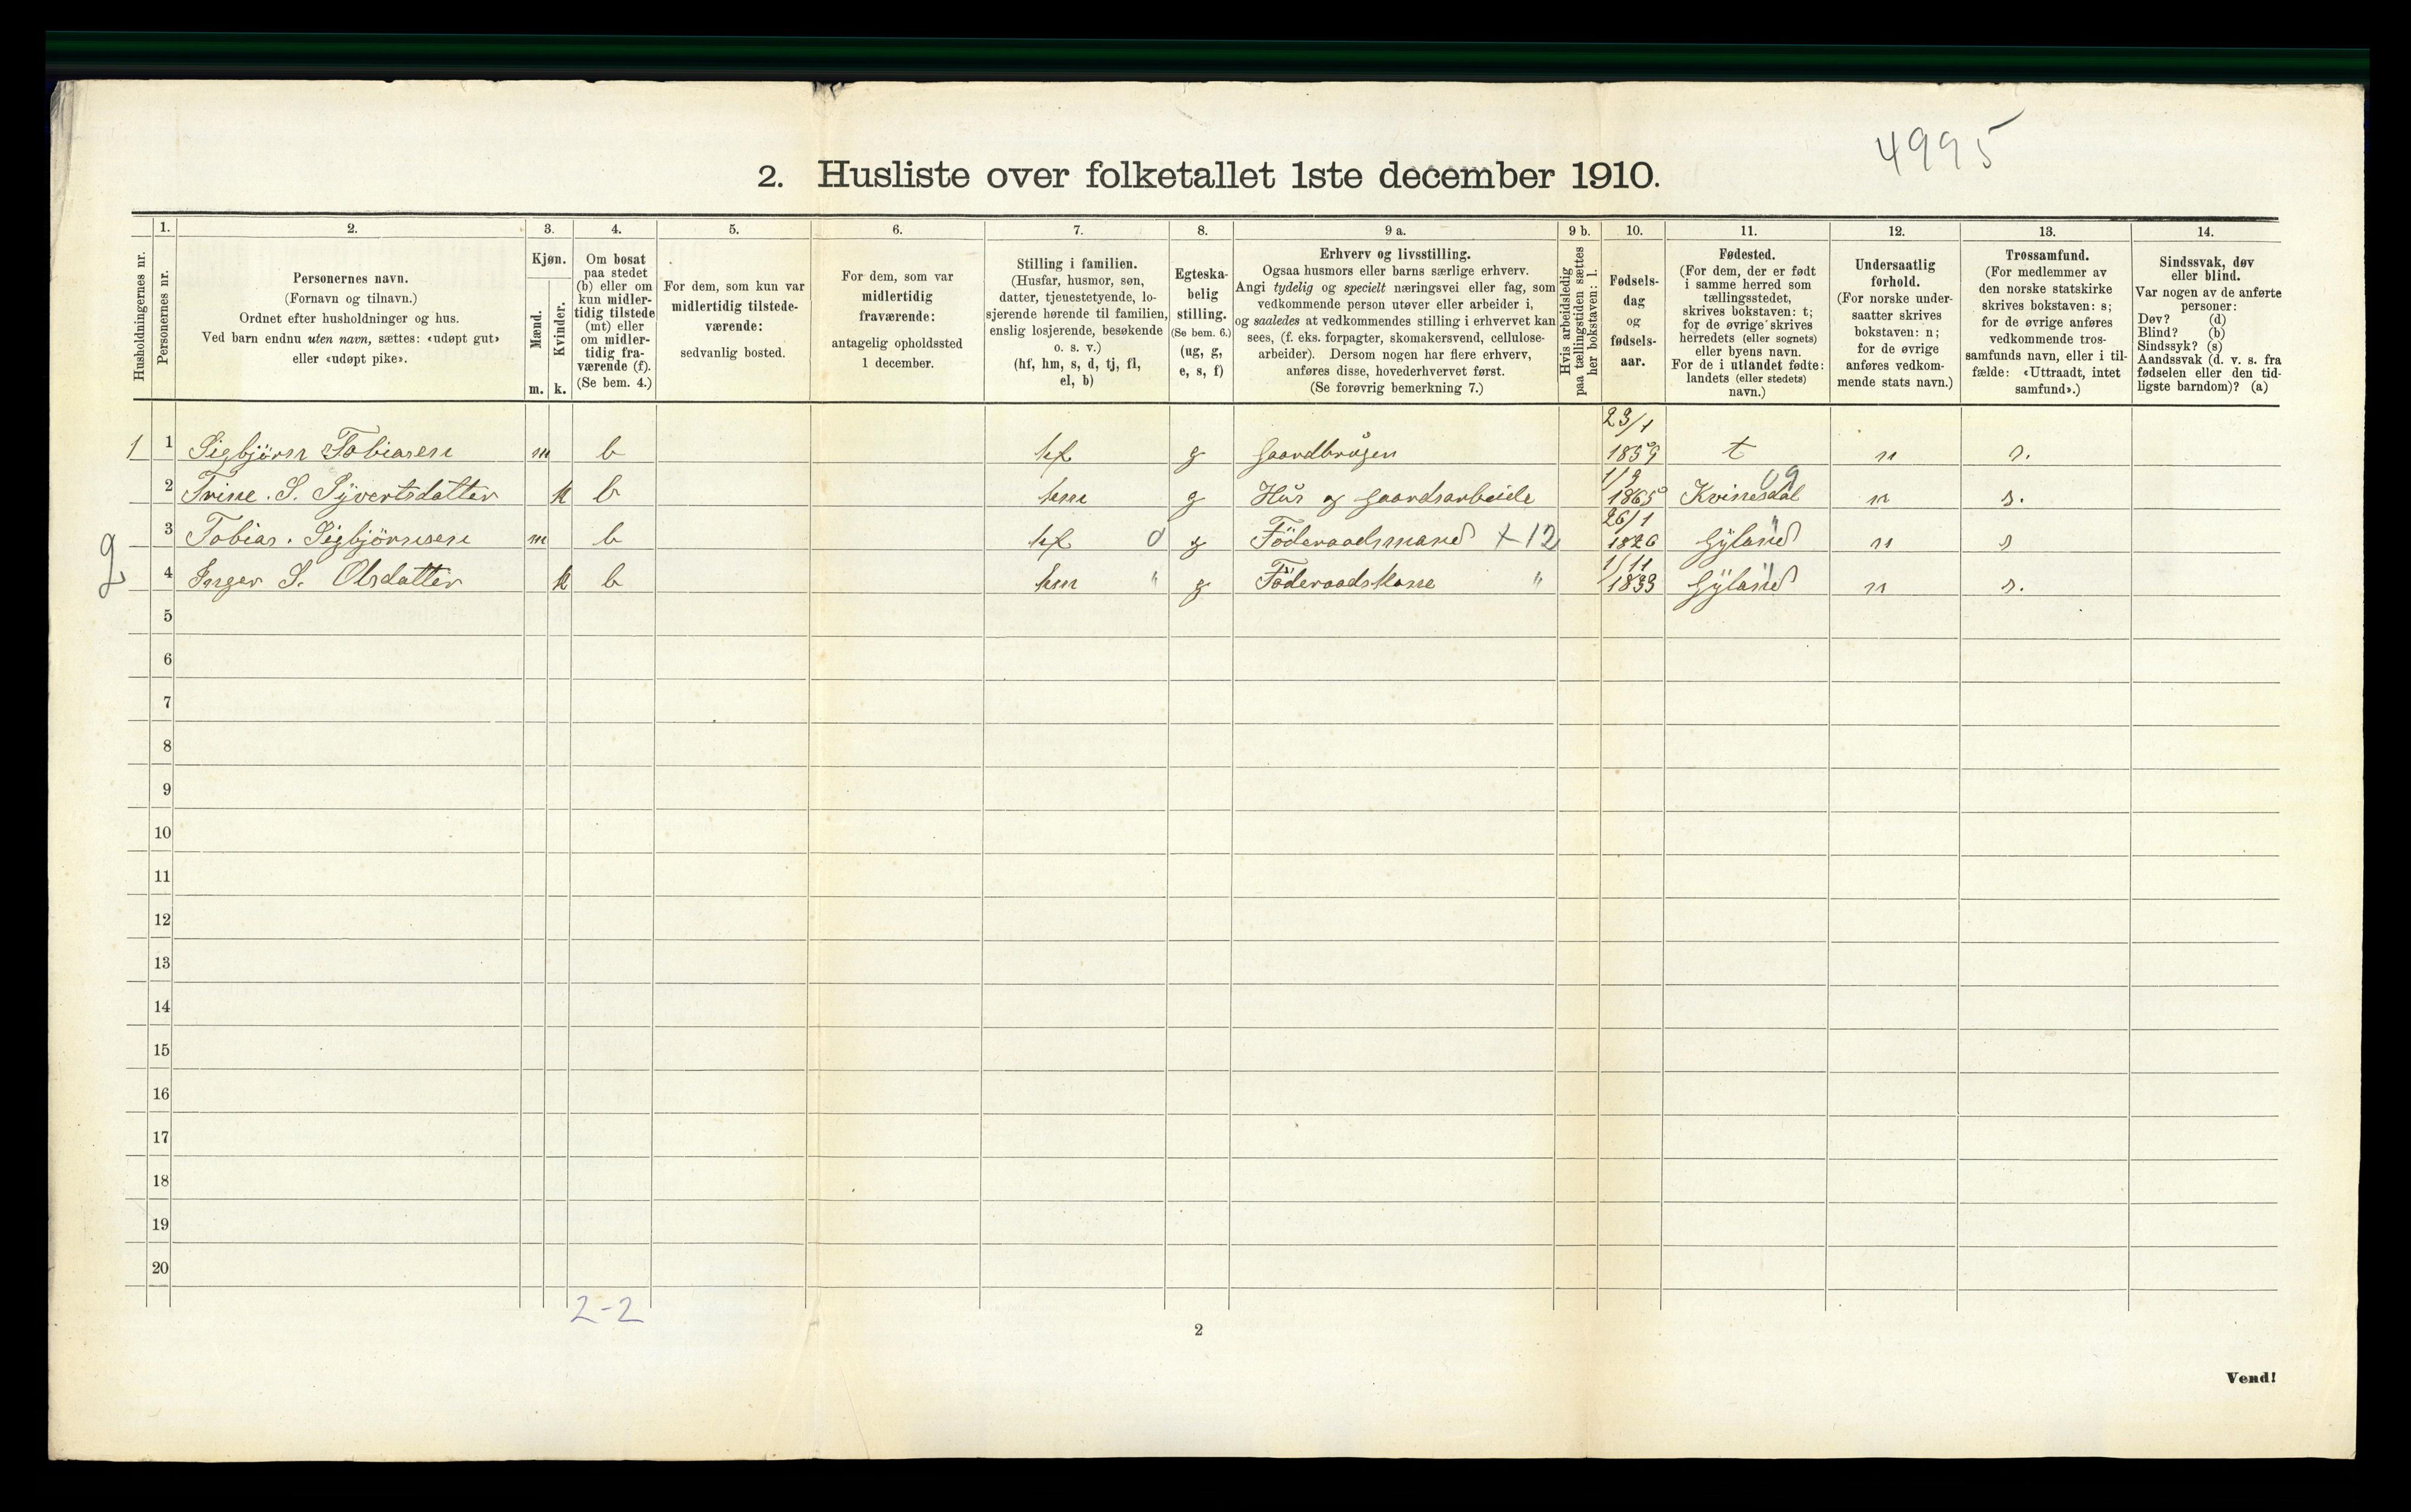 4995
2. Husliste over folketallet 1ste december 1910.
1. 2. 3. 4. 5. 6. 7. 8. 9 a. 9 b. 10. 11. 12. 13. 14.
Husholdningernes nr.
Personernes nr.
Personernes navn.
(Fornavn og tilnavn.)
Ordnet efter husholdninger og hus.
Ved barn endnu uten navn, sættes: «udøpt gut»
eller «udøpt pike».
Kjøn.
Mænd.
m.
Kvinder.
k.
Om bosat
paa stedet
(b) eller om
kun midler-
tidig tilstede
(mt) eller
om midler-
tidig fra-
værende (f).
(Se bem. 4.)
For dem, som kun var
midlertidig tilstede-
værende:
sedvanlig bosted.
For dem, som var
midlertidig
fraværende:
antagelig opholdssted
1 december.
Stilling i familien.
(Husfar, husmor, søn,
datter, tjenestetyende, lo-
sjerende hørende til familien,
enslig losjerende, besøkende
o. s. v.)
(hf, hm, s, d, tj, fl,
el, b)
Egteska-
belig
stilling.
(Se bem. 6.)
(ug, g,
e, s, f)
Erhverv og livsstilling.
Ogsaa husmors eller barns særlige erhverv.
Angi tydelig og specielt næringsvei eller fag, som
vedkommende person utøver eller arbeider i,
og saaledes at vedkommendes stilling i erhvervet kan
sees, (f. eks. forpagter, skomakersvend, cellulose-
arbeider). Dersom nogen har flere erhverv,
anføres disse, hovederhvervet først.
(Se forøvrig bemerkning 7.)
Hvis arbeidsledig
paa tællingstiden sættes
her bokstaven: l.
Fødsels-
dag
og
fødsels-
aar.
Fødested.
(For dem, der er født
i samme herred som
tællingsstedet,
skrives bokstaven: t;
for de øvrige skrives
herredets (eller sognets)
eller byens navn.
For de i utlandet fødte:
landets (eller stedets)
navn.)
Undersaatlig
forhold.
(For norske under-
saatter skrives
bokstaven: n;
for de øvrige
anføres vedkom-
mende stats navn.)
Trossamfund.
(For medlemmer av
den norske statskirke
skrives bokstaven: s;
for de øvrige anføres
vedkommende tros-
samfunds navn, eller i til-
fælde: «Uttraadt, intet
samfund».)
Sindssvak, døv
eller blind.
Var nogen av de anførte
personer:
Døv? (d)
Blind? (b)
Sindssyk? (s)
Aandssvak (d. v. s. fra
fødselen eller den tid-
ligste barndom)? (a)
1 1 Sigbjörn Tobiasen m b hf g Gaardbruger 23/1 1859 t n s.
2 Trine. S. Syvertsdatter k b hm g Hus og gaardsarbeide 1/9 1865 Kvinesdal 09 n s.
2 3 Tobias. Sigbjörnsen m b hf 0 g Föderaadsmand +12 26/1 1826 Gyland " n s
4 Inger S. Olsdatter k b hm " g Föderaadskone " 1/11 1833 Gyland " n s.
5
6
7
8
9
10
11
12
13
14
15
16
17
18
19
20
2-2
2
Vend!